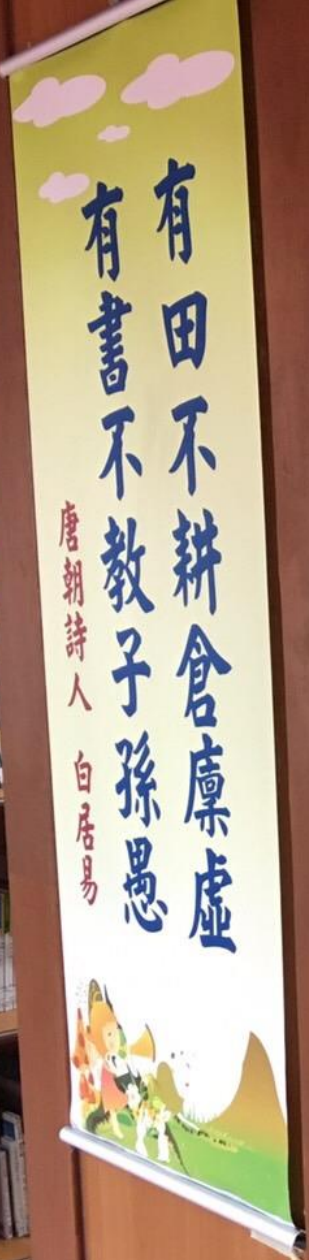 有田不耕倉廩虛
有書不教子孫愚
唐朝詩人 白居易